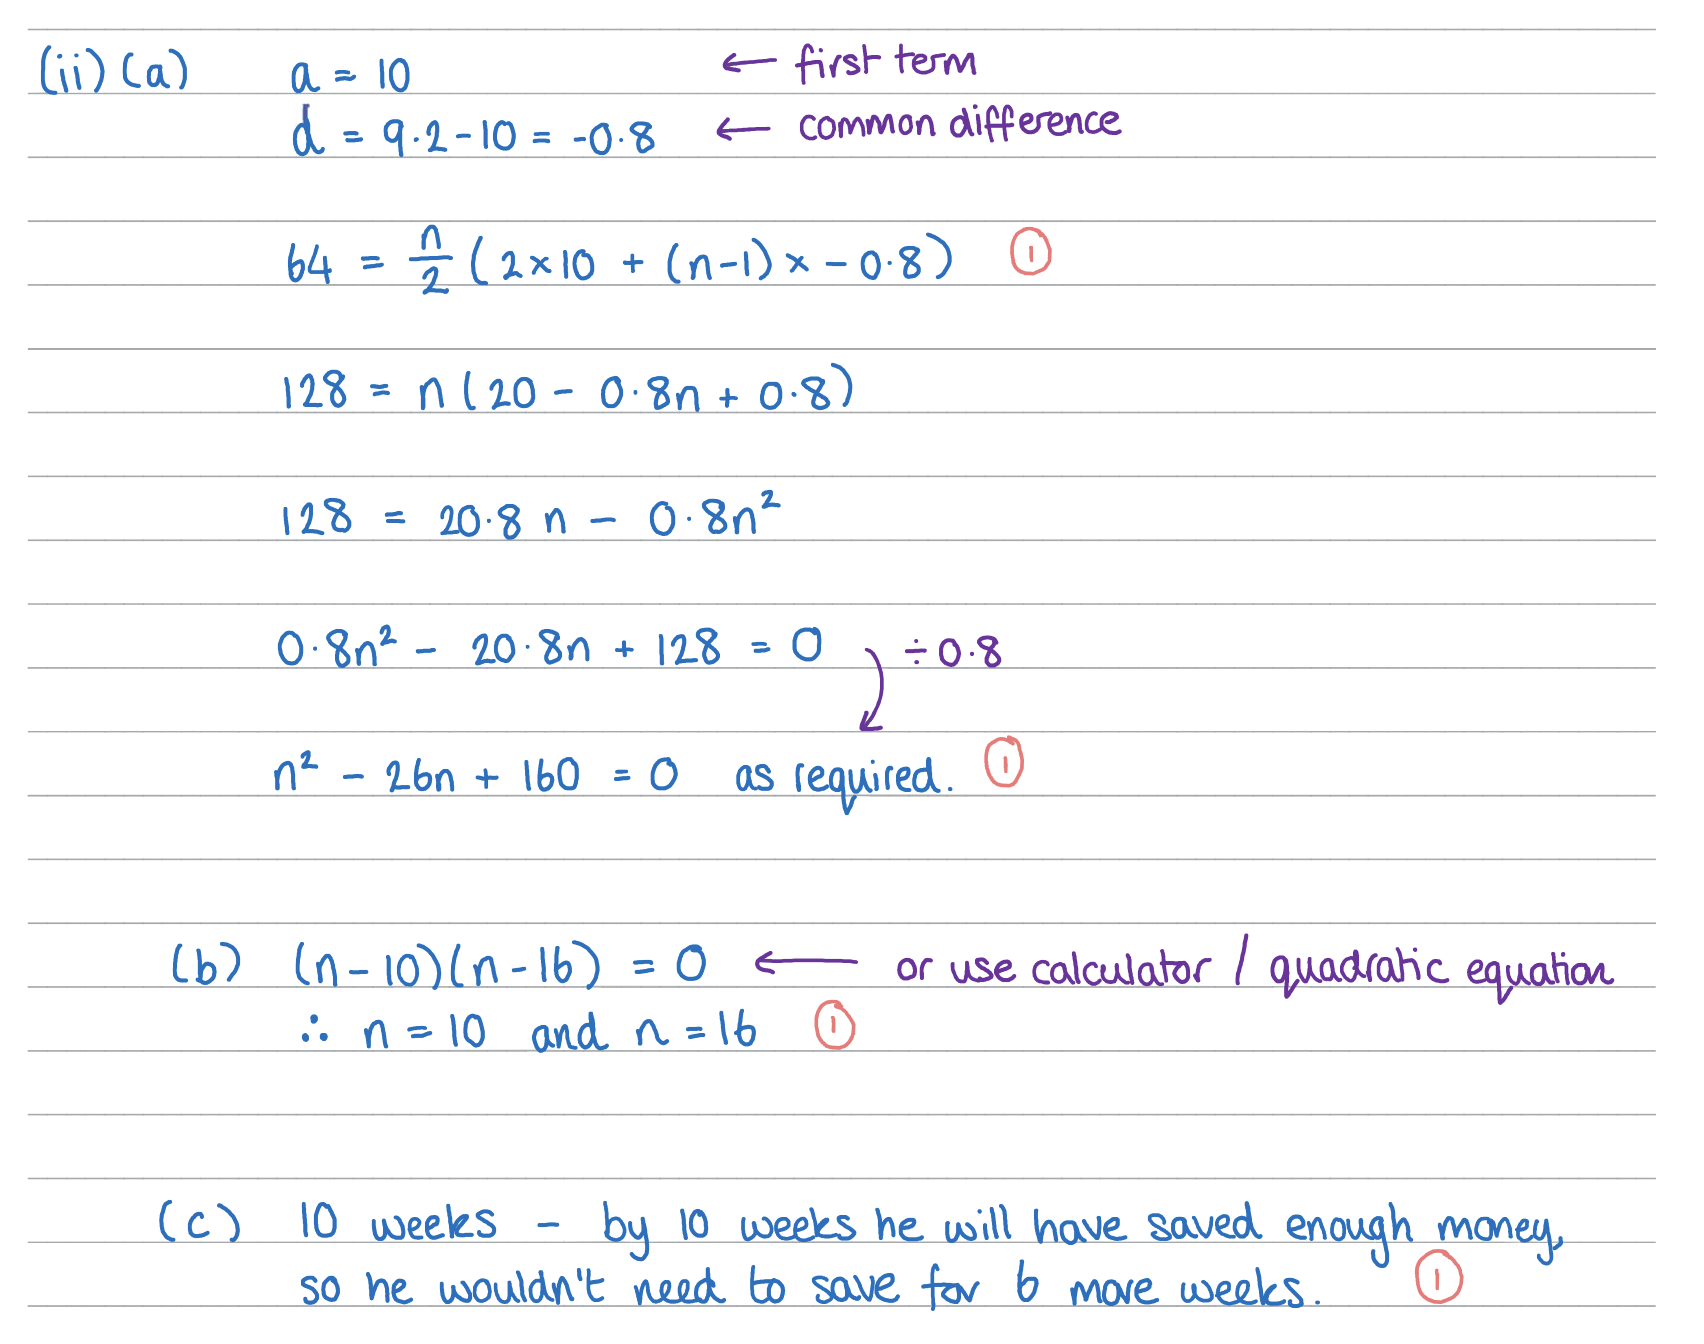 (ii) (a) a = 10 ← first term
d = 9.2 - 10 = -0.8 ← common difference
64 = n/2 (2 × 10 + (n-1) × -0.8) ①
128 = n (20 - 0.8n + 0.8)
128 = 20.8 n - 0.8n²
0.8n² - 20.8n + 128 = 0 ÷ 0.8
n² - 26n + 160 = 0 as required. ①
(b) (n-10)(n-16) = 0 ← or use calculator / quadratic equation
∴ n = 10 and n = 16 ①
(c) 10 weeks - by 10 weeks he will have saved enough money,
so he wouldn't need to save for 6 more weeks. ①